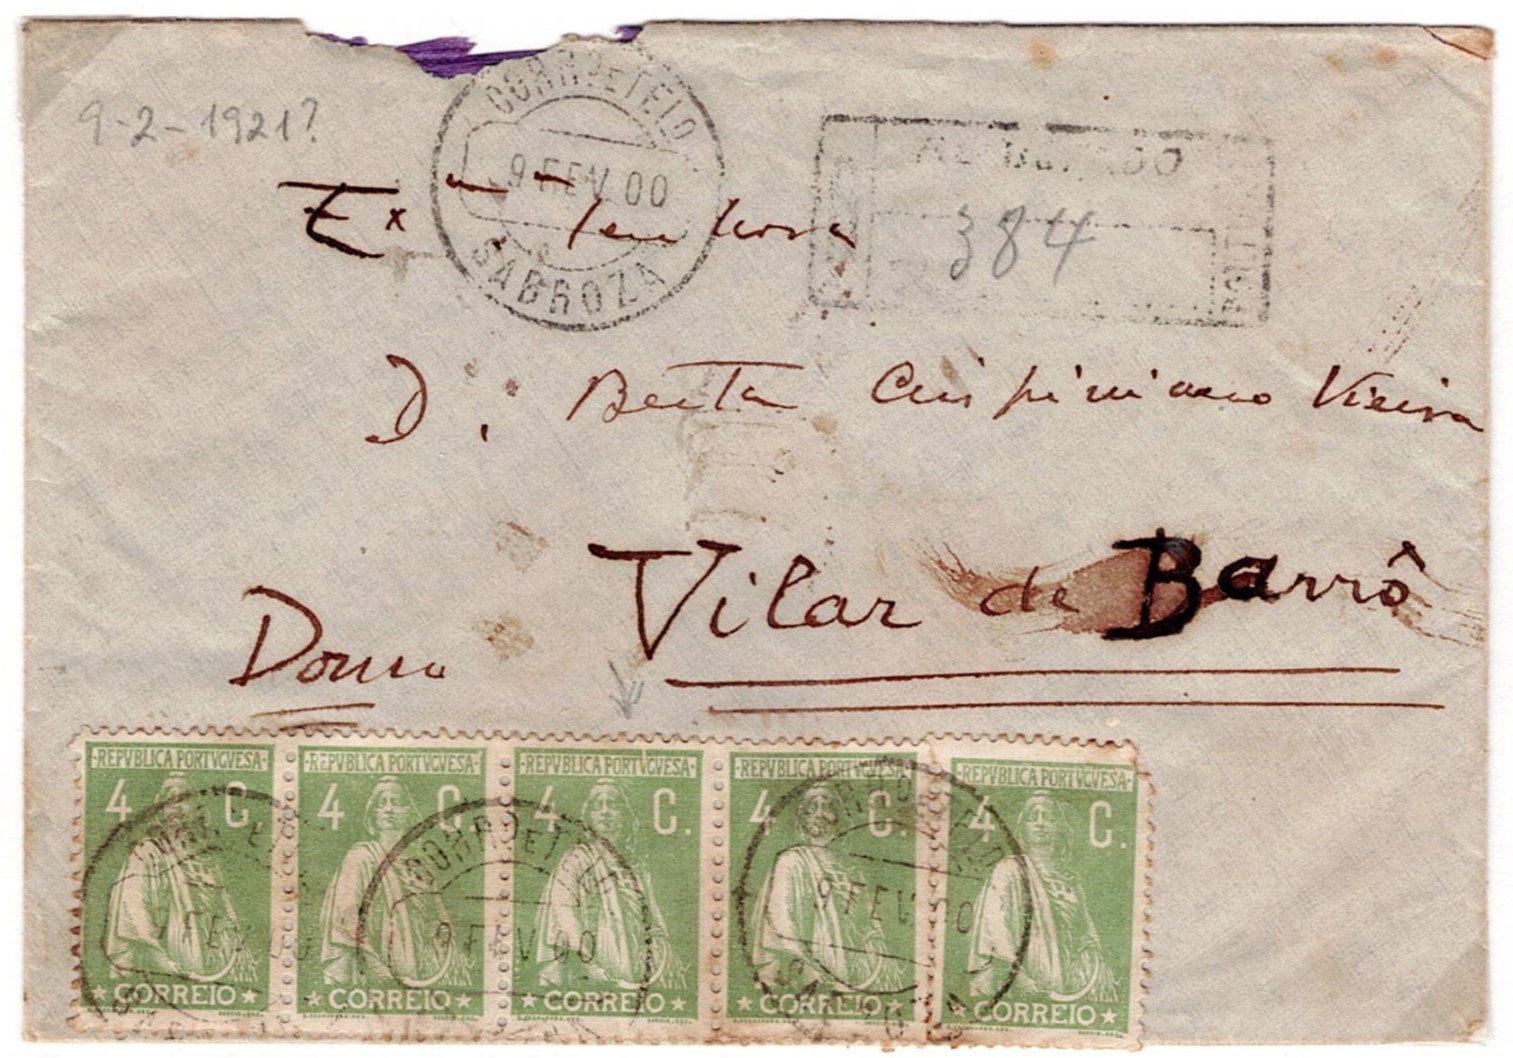 9-2-1921?
CORRO E TELO
9 FEV. 00
SABROZA
384
Exma Senhora
D. Berta Crispiniano Vieira
Vilar de Barrô
Douro
·REPVBLICA PORTVGVESA· ·REPVBLICA PORTVGVESA· ·REPVBLICA PORTVGVESA· ·REPVBLICA PORTVGVESA· ·REPVBLICA PORTVGVESA·
4 C. 4 C. 4 C. 4 C. 4 C.
9 FEV 00 9 FEV 00 9 FEV 00
★CORREIO★ ★CORREIO★ ★CORREIO★ ★CORREIO★ ★CORREIO★